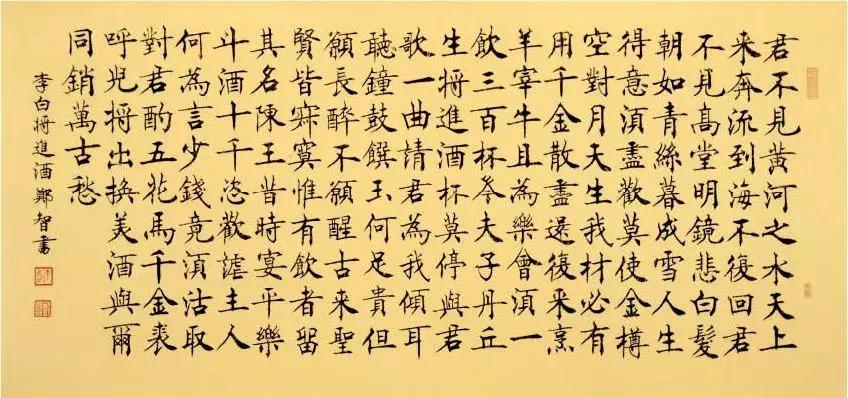 君不見黄河之水天上
来奔流到海不復回君
不見高堂明鏡悲白髮
朝如青絲暮成雪人生
得意湏盡歡莫使金樽
空對月天生我材必有
用千金散盡還復来烹
羊宰牛且為樂會湏一
飲三百杯岑夫子丹丘
生将進酒杯莫停與君
歌一曲請君為我傾耳
聽鐘鼓饌玉何足貴但
願長醉不願醒古来聖
賢皆寂寞惟有飲者留
其名陳王昔時宴平樂
斗酒十千恣歡謔主人
何為言少錢竟湏沽取
對君酌五花馬千金裘
呼兒将出换美酒與爾
同銷萬古愁
李白将進酒鄭智書